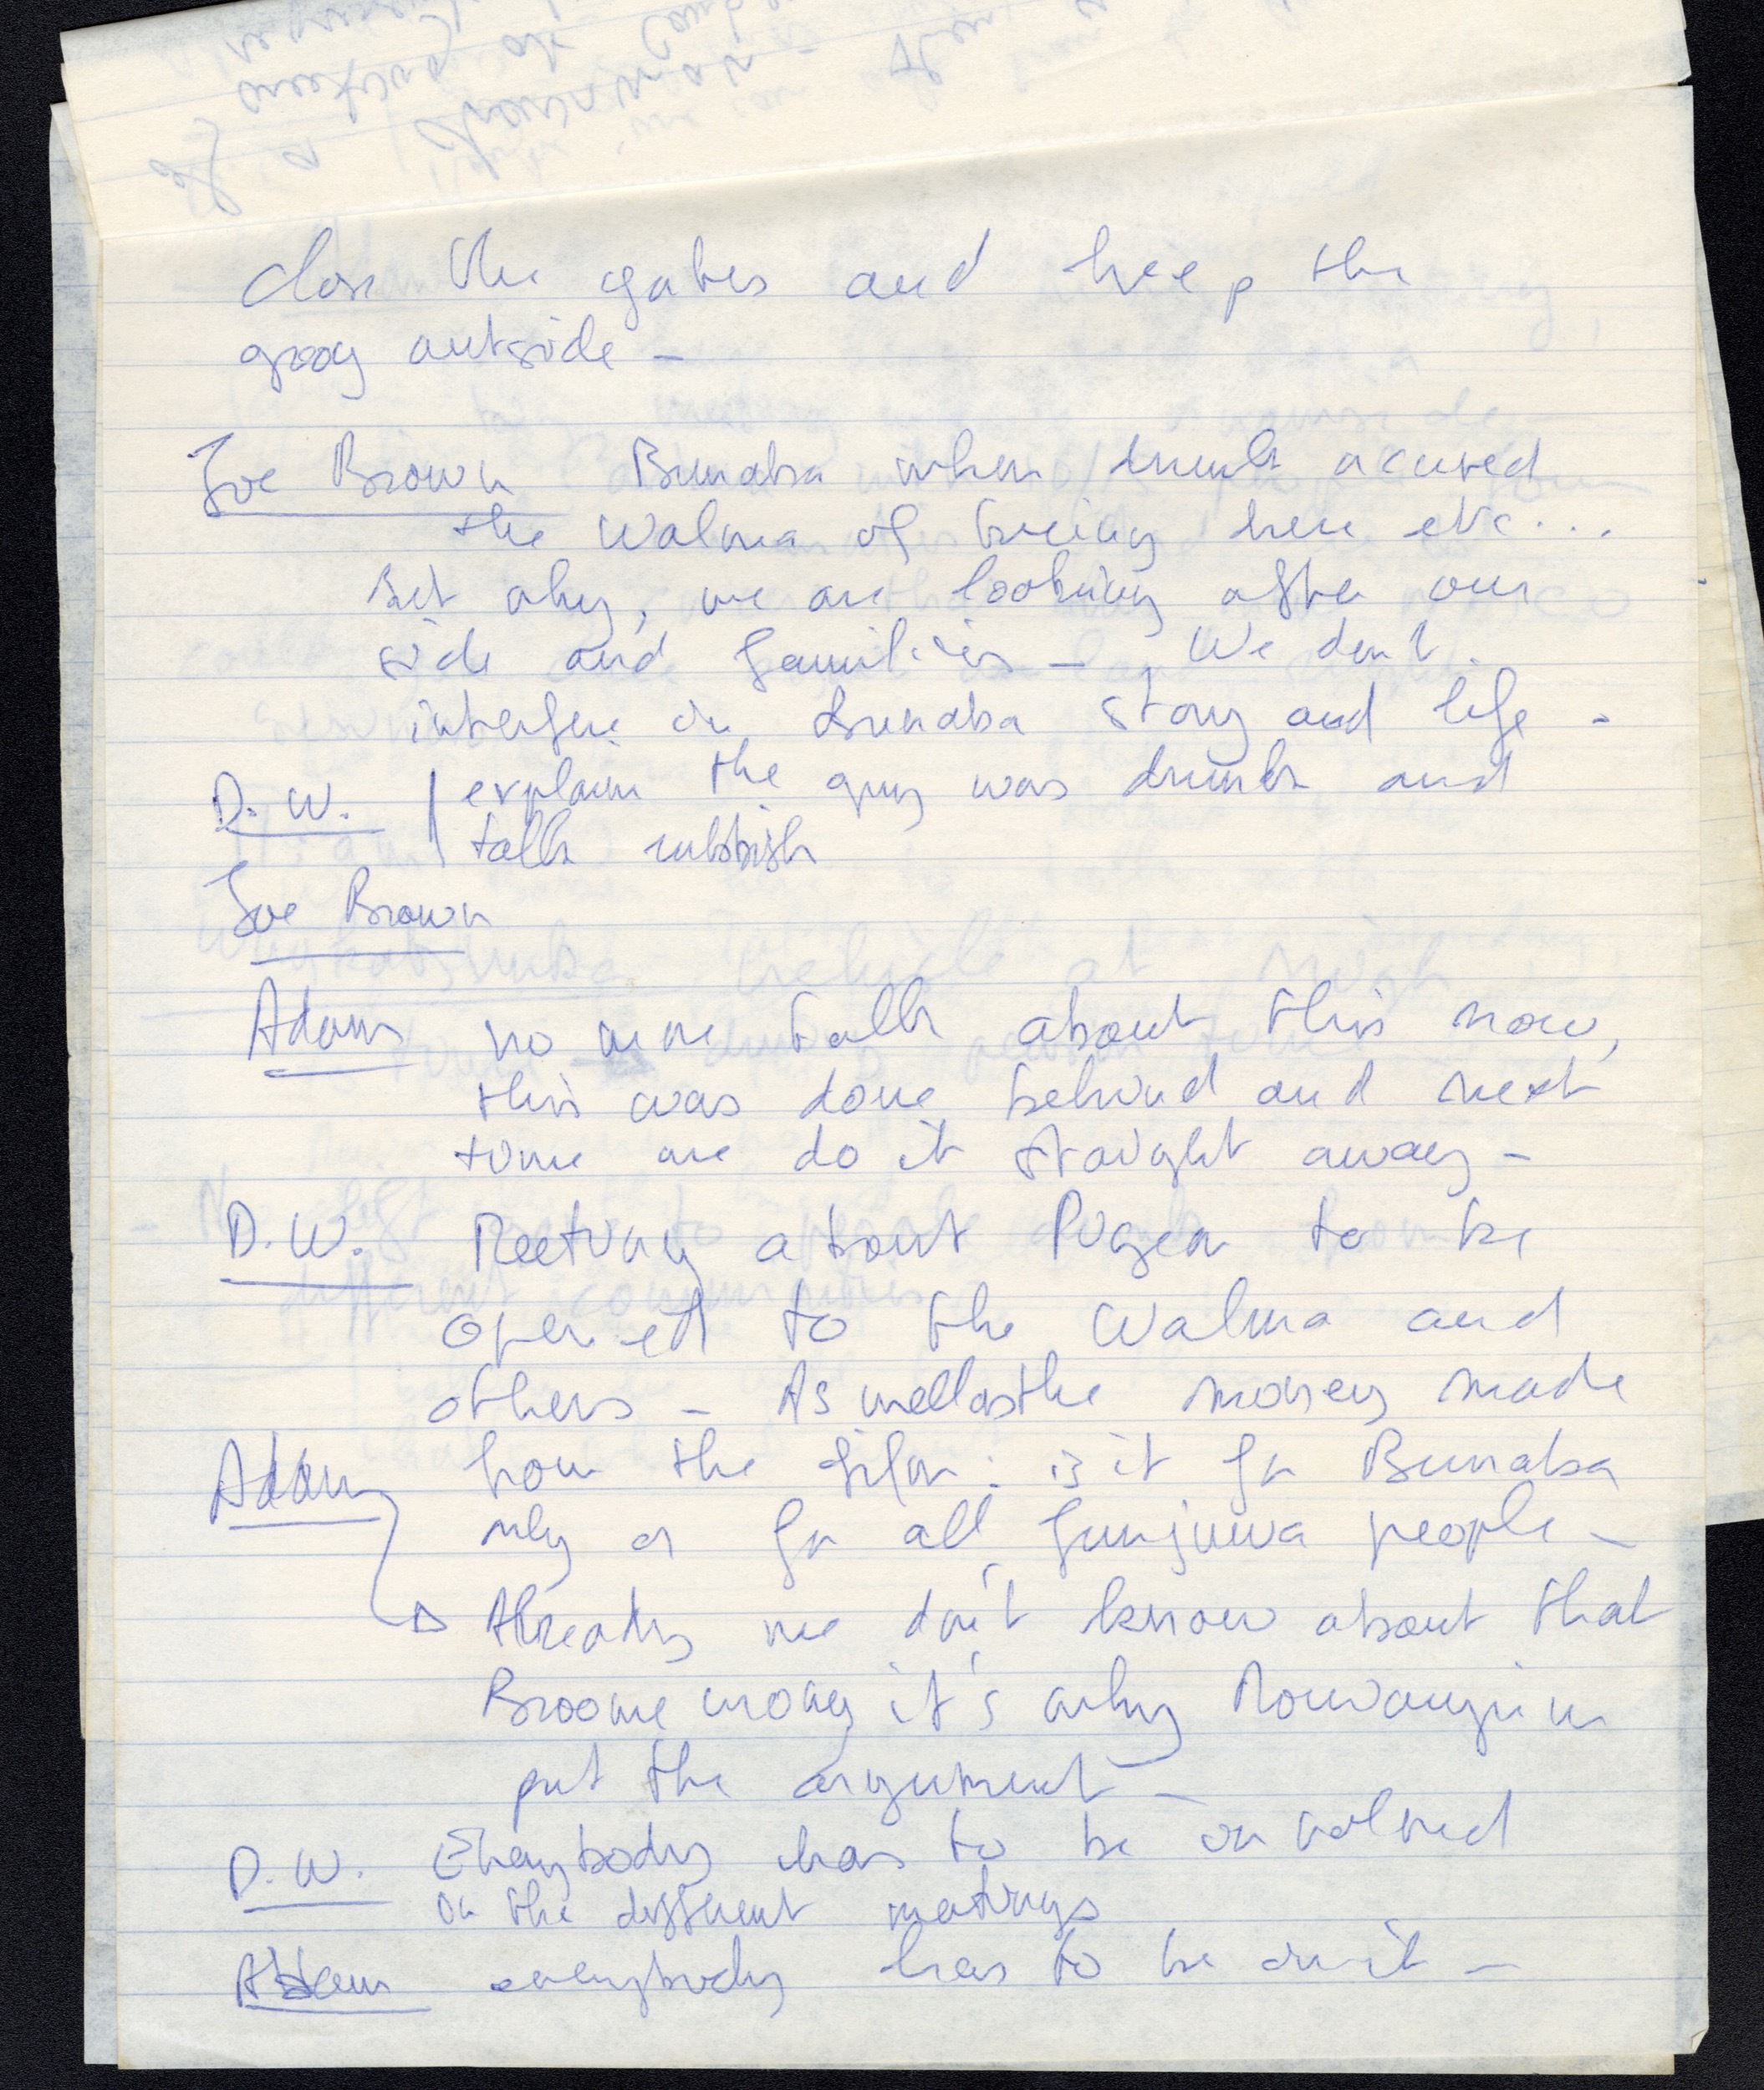 close the gates and keep the
grog outside –
Joe Brown Bunaba when drunk accused
the Walma of being here etc...
But why, we are looking after our
side and families – We don't
interfere in Bunaba story and life –
D.W. explain the guy was drunk and
talk rubbish
Joe Brown
Adam no more talk about this now,
this was done behind and next
time we do it straight away –
D.W. Meeting about Pigeon to be
opened to the Walma and
others – As wellasthe money made
Adam from the film : is it for Bunaba
only or for all Junjuwa people –
Already we don't know about that
Broome it's why
put the argument –
D.W. Everybody has to be involved
in the different meetings
Adam everybody has to be in it –